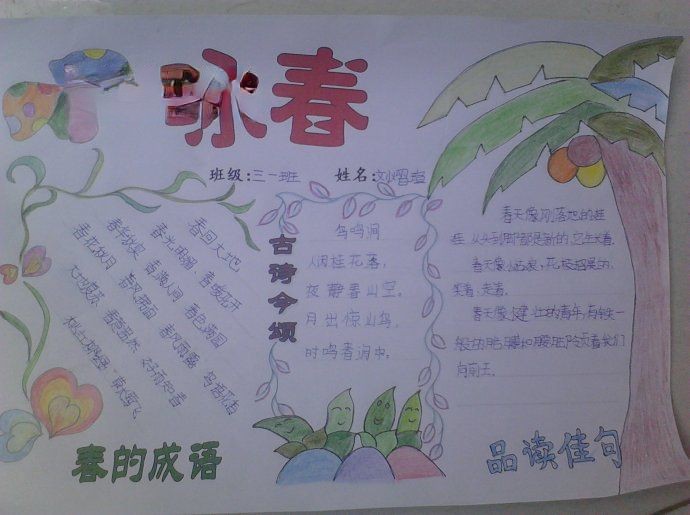 咏春
班级:三一班 姓名:刘
春回大地 春暖花开 春色满园 鸟语花香
春光明媚 春满人间 春风雨露
春华秋实 春风满面 春意盎然
春花秋月
大地
古诗今颂
鸟鸣涧
人闲桂花落,
夜静春山空。
月出惊山鸟,
时鸣春涧中。
春天像刚落地的娃
娃,从头到脚都是新的,它生长着。
春天像小姑娘,花枝招展的,
笑着,走着。
春天像健壮的青年,有铁一
般的胳膊和腰脚,领着我们
向前去。
春的成语
品读佳句